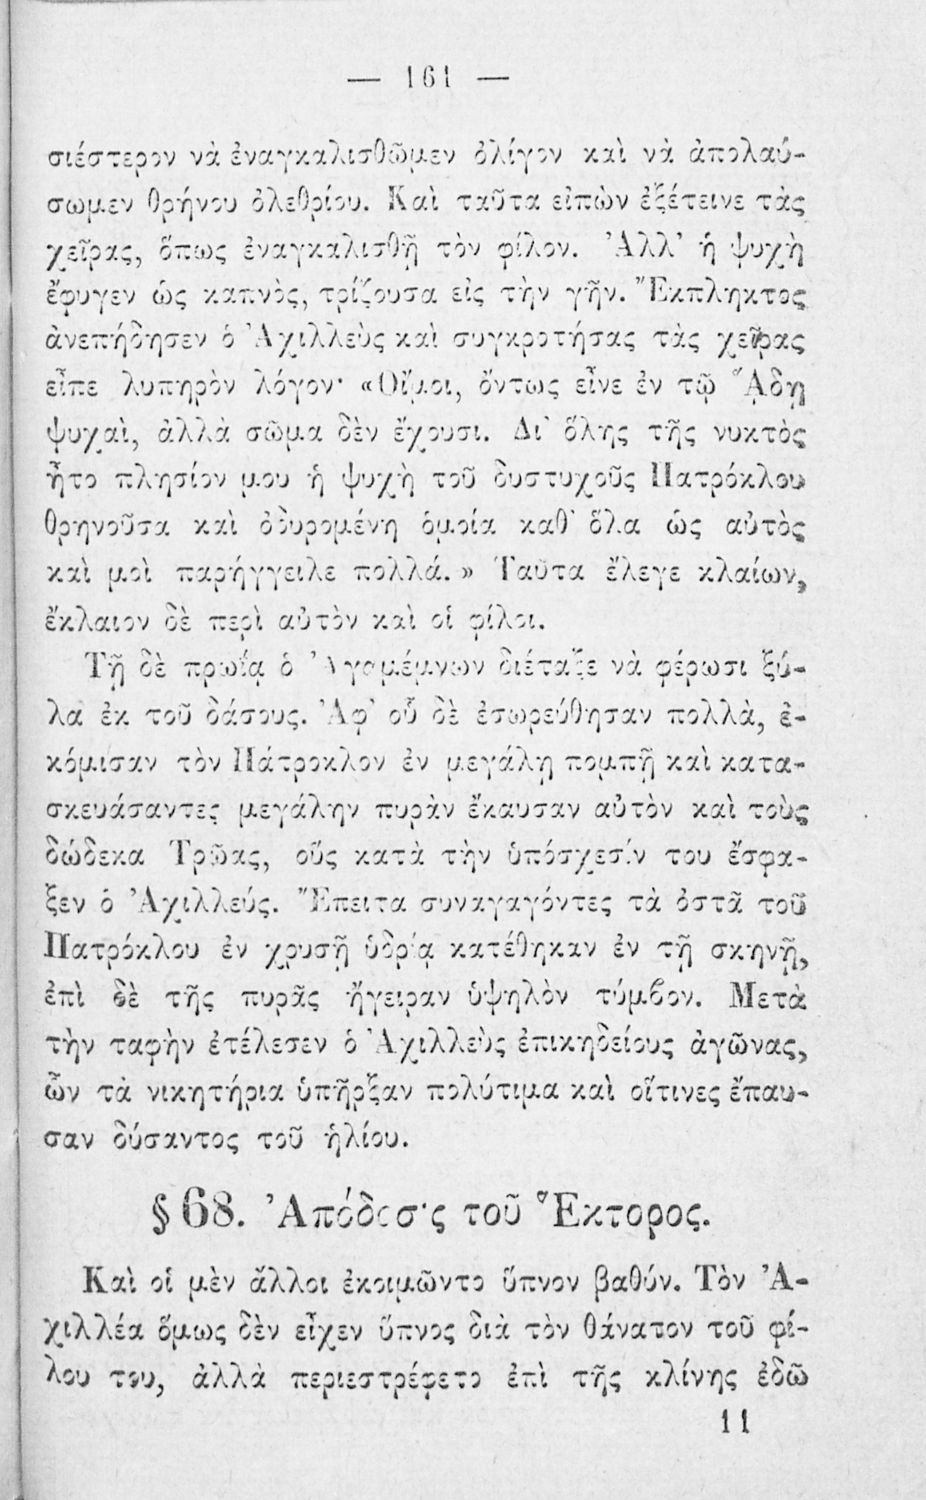 — 161 —
σιέστερον νὰ ἐναγκαλισθῶμεν ὀλίγον καὶ νὰ ἀπολαύ-
σωμεν θρήνου ὀλεθρίου. Καὶ ταῦτα εἰπὼν ἐξέτεινε τὰς
χεῖρας, ὅπως ἐναγκαλισθῇ τὸν φίλον. Ἀλλ’ ἡ ψυχὴ
ἔφυγεν ὡς καπνὸς, τρίζουσα εἰς τὴν γῆν. Ἔκπληκτος
ἀνεπήδησεν ὁ Ἀχιλλεὺς καὶ συγκροτήσας τὰς χεῖρας
εἶπε λυπηρὸν λόγον· «Οἴμοι, ὄντως εἶνε ἐν τῷ ᾍδῃ
ψυχαὶ, ἀλλὰ σῶμα δὲν ἔχουσι. Δι’ ὅλης τῆς νυκτὸς
ἦτο πλησίον μου ἡ ψυχὴ τοῦ δυστυχοῦς Πατρόκλου
θρηνοῦσα καὶ ὀδυρομένη ὁμοία καθ’ ὅλα ὡς αὐτὸς
καὶ μοὶ παρήγγειλε πολλά.» Ταῦτα ἔλεγε κλαίων,
ἔκλαιον δὲ περὶ αὐτὸν καὶ οἱ φίλοι.
Τῇ δὲ πρωΐᾳ ὁ Ἀγαμέμνων διέταξε νὰ φέρωσι ξύ-
λα ἐκ τοῦ δάσους. Ἀφ’ οὗ δὲ ἐσωρεύθησαν πολλὰ, ἐ-
κόμισαν τὸν Πάτροκλον ἐν μεγάλῃ πομπῇ καὶ κατα-
σκευάσαντες μεγάλην πυρὰν ἔκαυσαν αὐτὸν καὶ τοὺς
δώδεκα Τρῶας, οὓς κατὰ τὴν ὑπόσχεσίν του ἔσφα-
ξεν ὁ Ἀχιλλεύς. Ἔπειτα συναγαγόντες τὰ ὀστᾶ τοῦ
Πατρόκλου ἐν χρυσῇ ὑδρίᾳ κατέθηκαν ἐν τῇ σκηνῇ,
ἐπὶ δὲ τῆς πυρᾶς ἤγειραν ὑψηλὸν τύμβον. Μετὰ
τὴν ταφὴν ἐτέλεσεν ὁ Ἀχιλλεὺς ἐπικηδείους ἀγῶνας,
ὧν τὰ νικητήρια ὑπῆρξαν πολύτιμα καὶ οἵτινες ἔπαυ-
σαν δύσαντος τοῦ ἡλίου.
§ 68. Ἀπόδοσις τοῦ Ἕκτορος.
Καὶ οἱ μὲν ἄλλοι ἐκοιμῶντο ὕπνον βαθύν. Τὸν Ἀ-
χιλλέα ὅμως δὲν εἶχεν ὕπνος διὰ τὸν θάνατον τοῦ φί-
λου του, ἀλλὰ περιεστρέφετο ἐπὶ τῆς κλίνης ἐδῶ
11